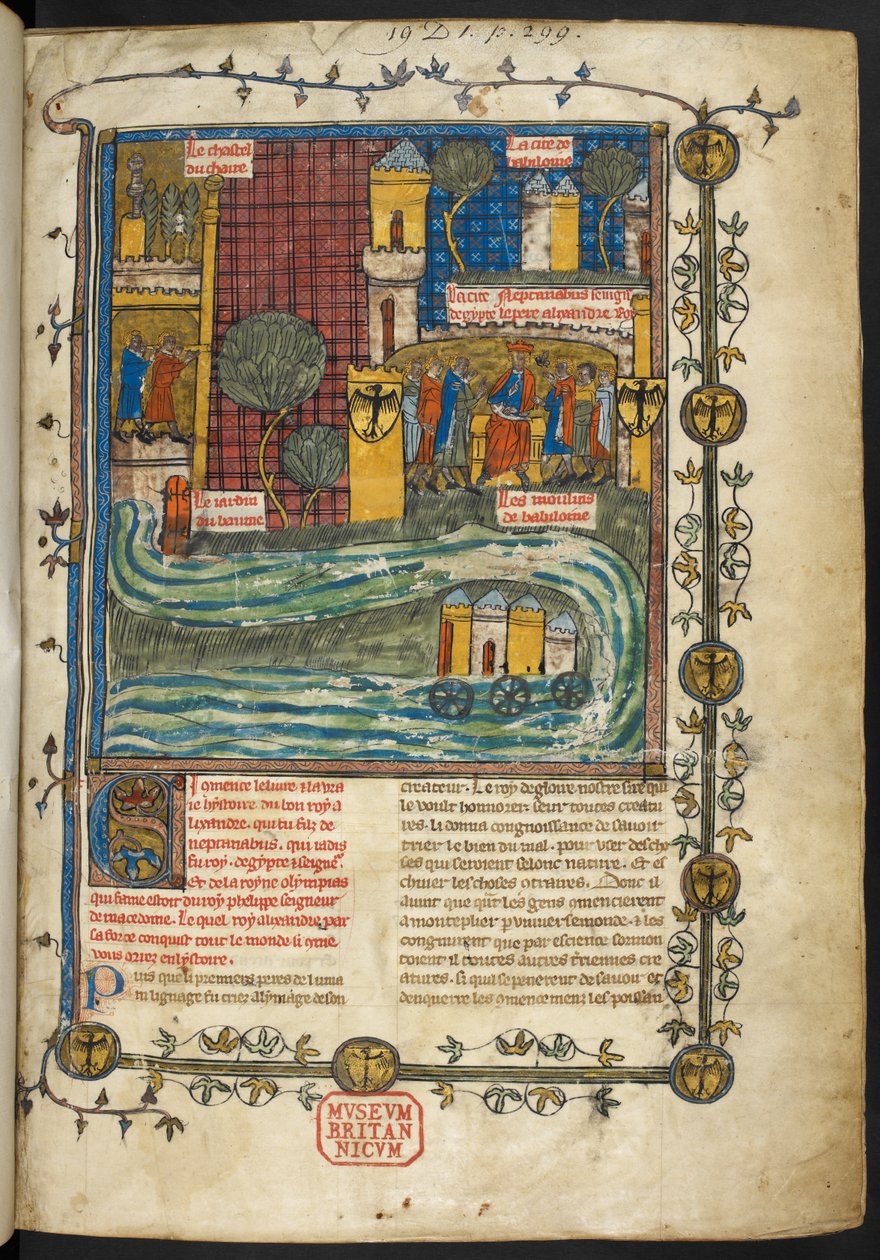 19 D 1. p. 299.
Le chastel
du chaire
La cite de
babiloine
La cite Neptanabus seingn
degypte le pere alixandre Roy
Le iardin
du baume
Les moulins
de babiloine
Cy
qmence le liure & la vra
ie hystoire du bon roy a
lixandre. qui fu filz de
neptanabus. qui iadis
fu roy. degypte & seigne
Et de la royne olympias
qui fame estoit du roy phelippe seigneur
de macedone. Le quel roy alixandre par
sa force conquist tout le monde si qme
vous orrez en lystoire.
Puis que li premiers peres de luma
in lignage fu criez a lymage de son
createur. Le roy de gloire nostre sire qui
le voult honnorer seur toutes creatu
res. li donna congnoissance de sauoir
trier le bien du mal. pour user des cho
ses qui seruient selonc nature. Et es
chiuer les choses qtraires. Donc il
auint que qnt les gens qmencierent
a monteplier p vniuerse monde. & les
congnurent que par escience sormon
toient il toutes autres triennes cre
atures. si qui se penerent de sauoir et
denquerre les qmencemenz les poissan
MVSEVM
BRITAN
NICVM